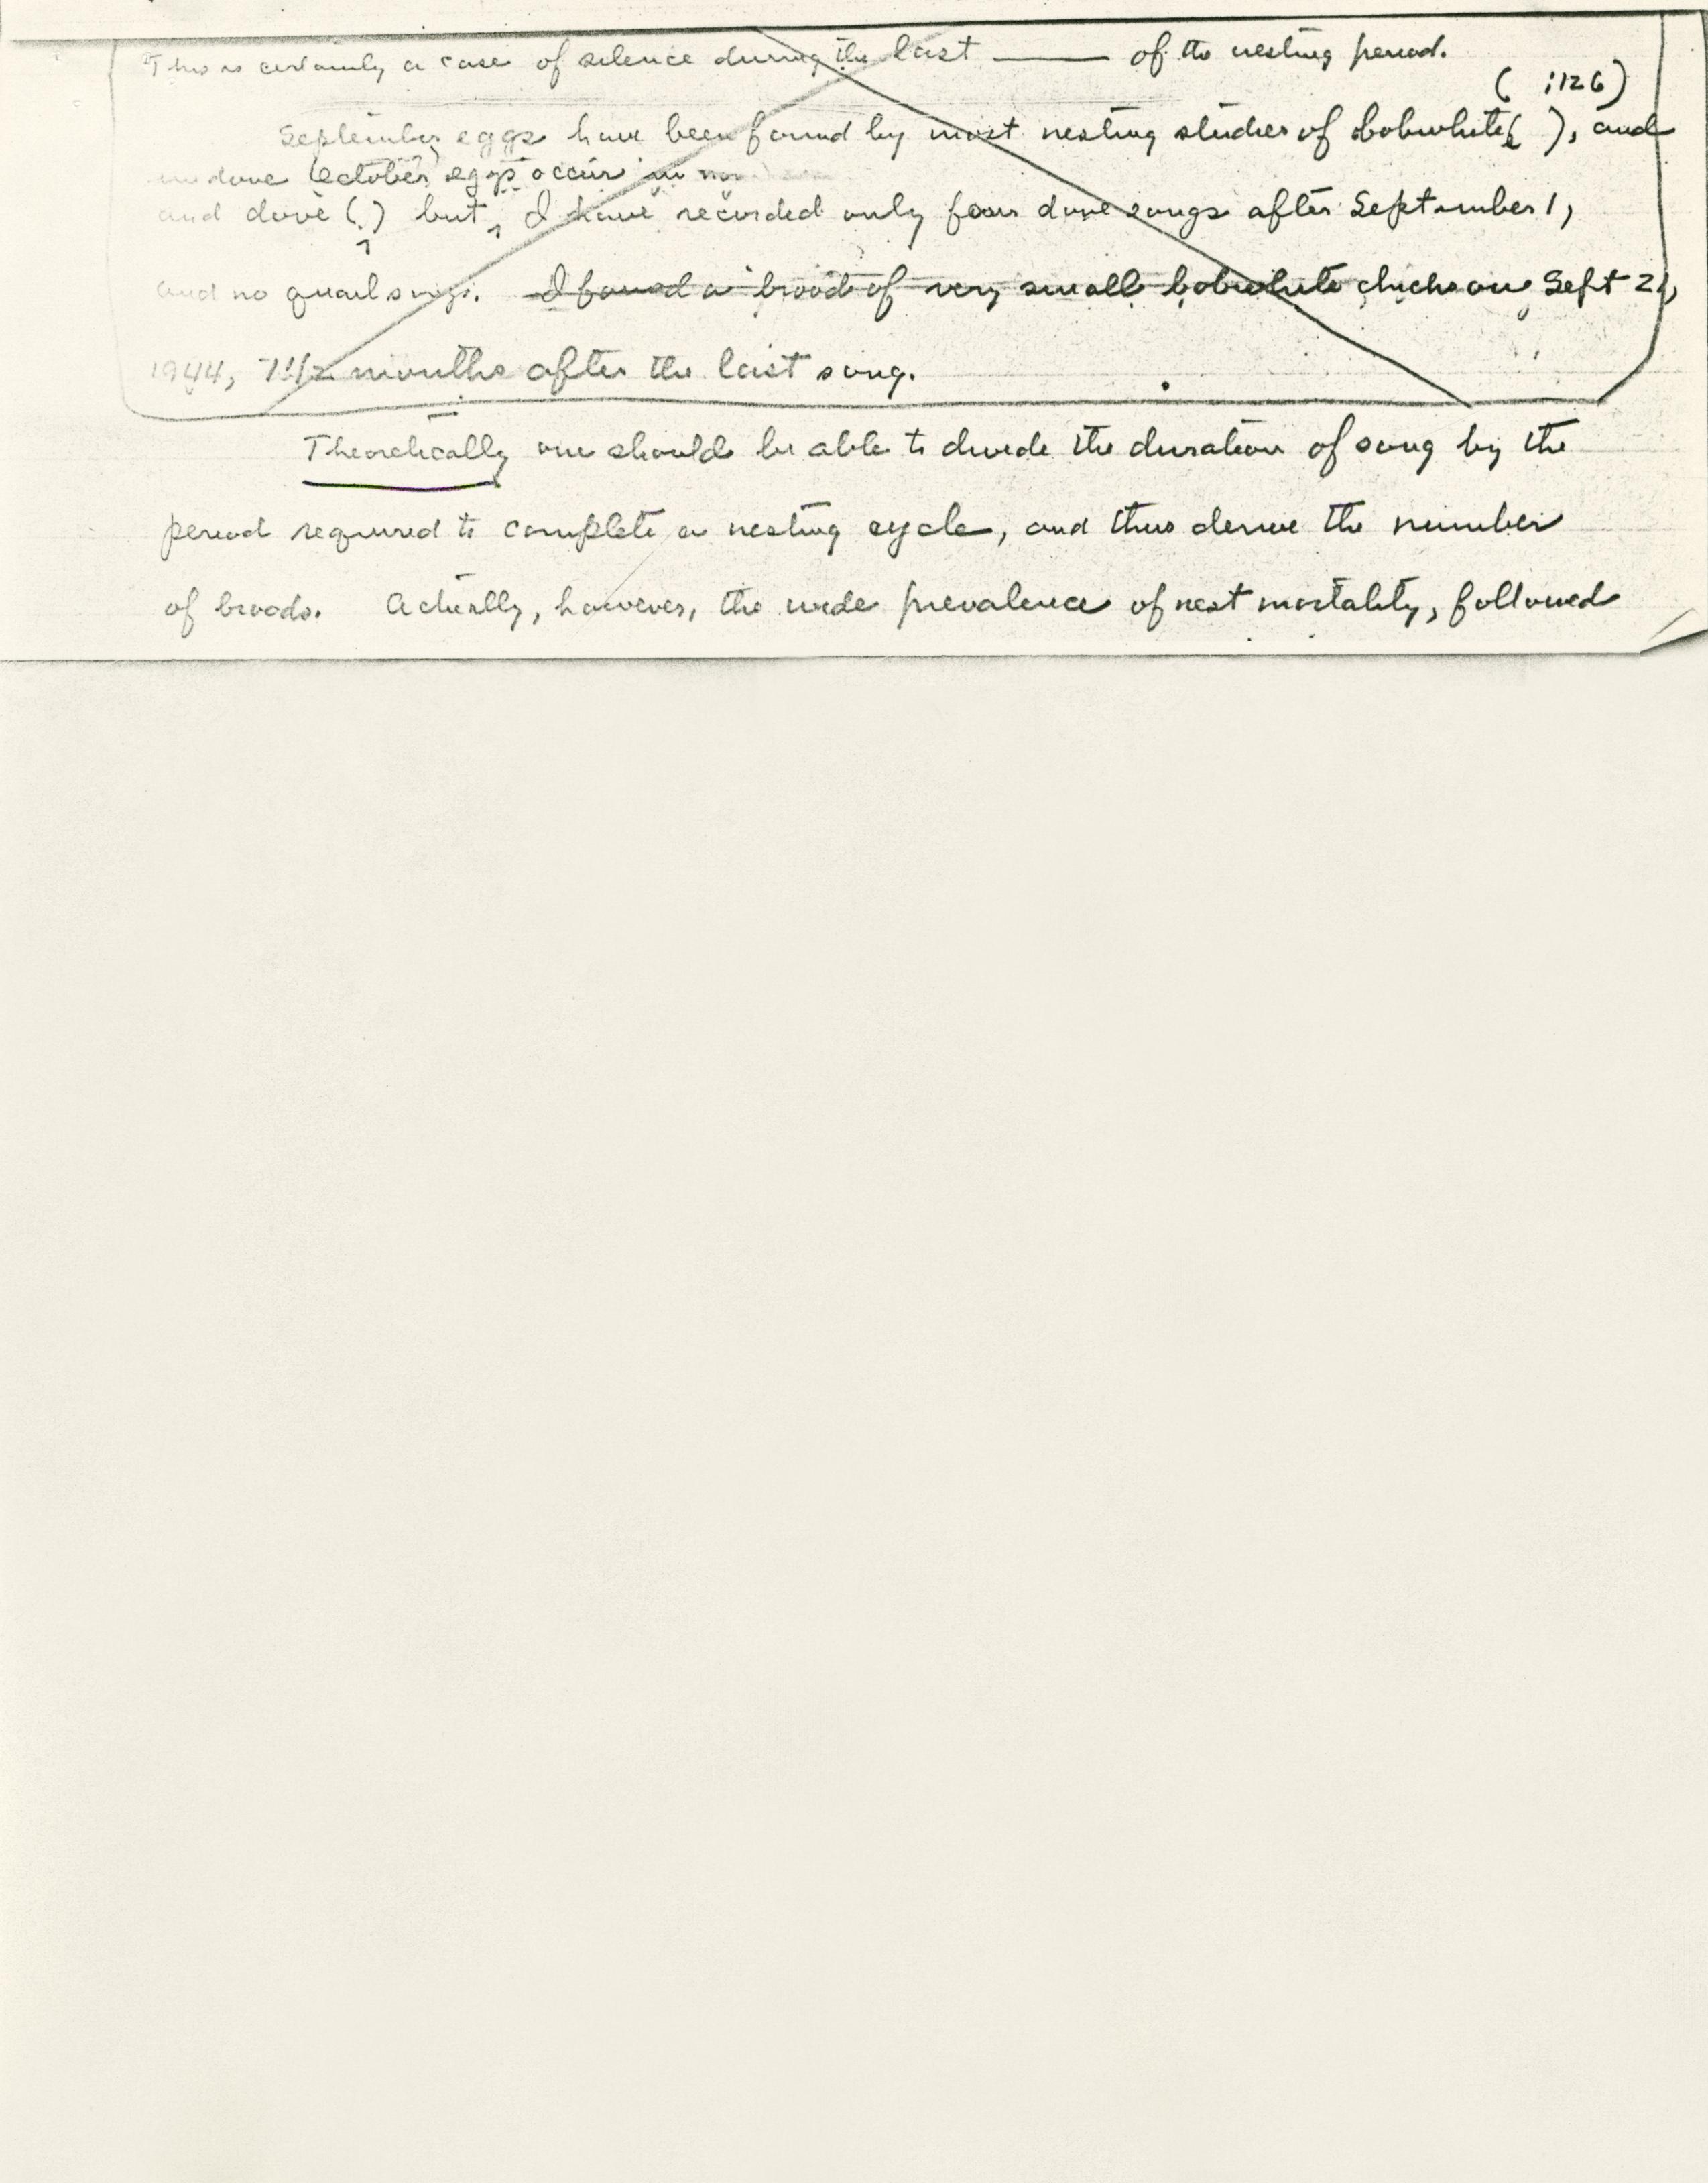 This is certainly a case of silence during the last ——— of the nesting period.
( :126)
September eggs have been found by most nesting studies of bobwhite ( ), and
in dove October eggs occur in
and dove ( ) but, I have recorded only four dove songs after September 1,
and no quail songs. I found a brood of very small bobwhite chicks on Sept 21,
1944, 1 1/2 months after the last song.
Theoretically one should be able to divide the duration of song by the
period required to complete a nesting cycle, and thus derive the number
of broods. Actually, however, the wide prevalence of nest mortality, followed